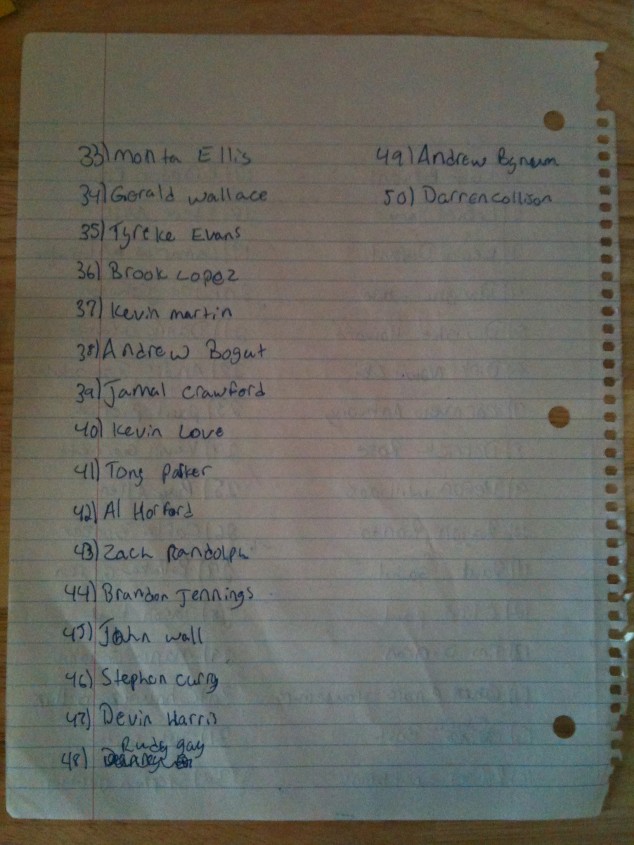 33) Monta Ellis
34) Gerald Wallace
35) Tyreke Evans
36) Brook Lopez
37) Kevin martin
38) Andrew Bogut
39) Jamal Crawford
40) Kevin Love
41) Tony Parker
42) Al Horford
43) Zach Randolph
44) Brandon Jennings
45) John Wall
46) Stephen Curry
47) Devin Harris
48) Rudy gay
49) Andrew Bynum
50) Darren Collison